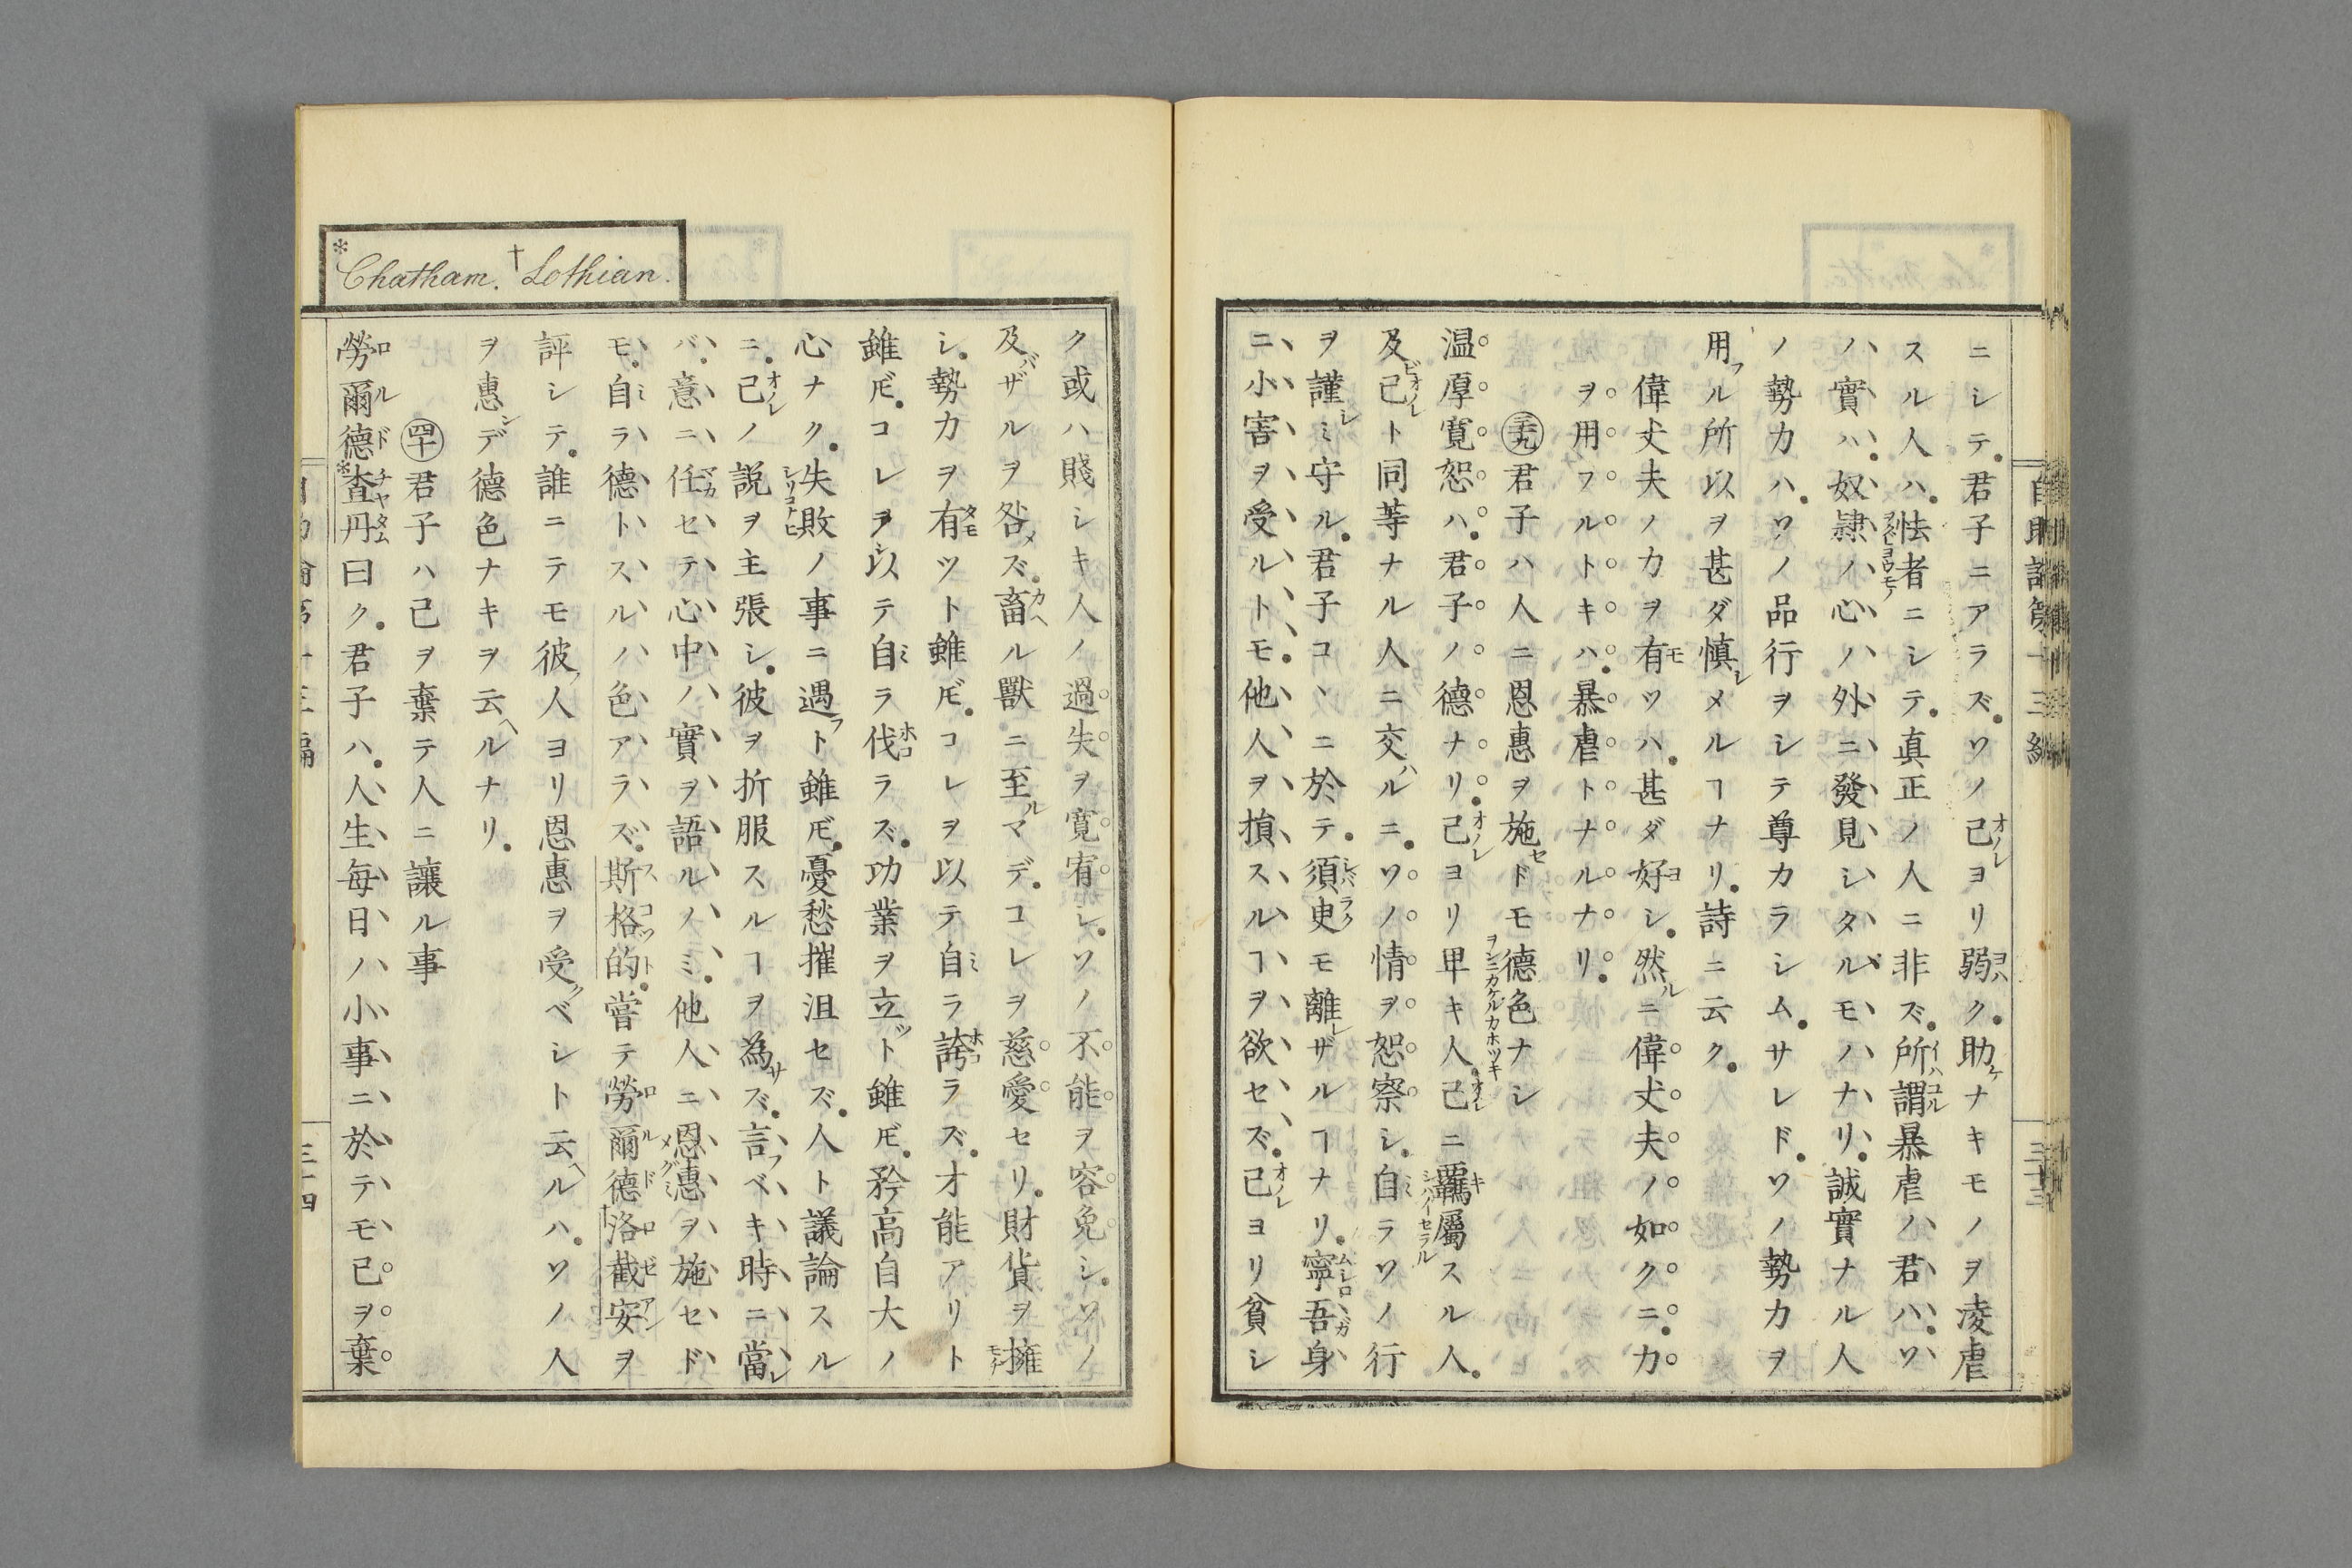 ニシテ君子ニアラズソノ己ヨリ弱ク助ナキモノヲ凌虐
スル人ハ怯者ニシテ真正ノ人ニ非ズ所謂暴虐ノ君ハソ
ノ實ハ奴隷ノ心ノ外ニ發見シタルモノナリ誠實ナル人
ノ勢力ハソノ品行ヲシテ尊カラシムサレドソノ勢力ヲ
用ル所以ヲ甚ダ慎メルヿナリ詩ニ云ク
偉丈夫ノ力ヲ有ツハ甚ダ好シ然ニ偉丈夫ノ如クニ力
ヲ用フルトキハ暴虐トナルナリ
㊴君子ハ人ニ恩惠ヲ施ドモ德色ナシ
温厚寛恕ハ君子ノ德ナリ己ヨリ卑キ人己ニ羈屬スル人
及己ト同等ナル人ニ交ルニソノ情ヲ恕察シ自ラソノ行
ヲ謹ミ守ル君子コヽニ於テ須臾モ離ザルヿナリ寧吾身
ニ小害ヲ受ルトモ他人ヲ損スルヿヲ欲セズ己ヨリ貧シ
自助論第十三編
三十三
*Chatham. †Lothian.
ク或ハ賤シキ人ノ過失ヲ寛宥シソノ不能ヲ容免シソノ
及ザルヲ咎ズ畜ル獸ニ至マデコレヲ慈愛セリ財貨ヲ擁
シ勢力ヲ有ツト雖𪜈コレヲ以テ自ラ誇ラズ才能アリト
雖𪜈コレヲ以テ自ラ伐ラズ功業ヲ立ト雖𪜈矜高自大ノ
心ナク失敗ノ事ニ遇ト雖𪜈憂愁摧沮セズ人ト議論スル
ニ己ノ説ヲ主張シ彼ヲ折服スルヿヲ為ズ言ベキ時ニ當
バ意ニ任セテ心中ノ實ヲ語ルノミ他人ニ恩惠ヲ施セド
モ自ラ德トスルノ色アラズ斯格的嘗テ勞爾德洛截安ヲ
評シテ誰ニテモ彼人ヨリ恩惠ヲ受ベシト云ルハソノ人
ヲ惠デ德色ナキヲ云ルナリ
㊵君子ハ己ヲ棄テ人ニ讓ル事
勞爾德*査丹曰ク君子ハ人生毎日ノ小事ニ於テモ已ヲ棄
三十四